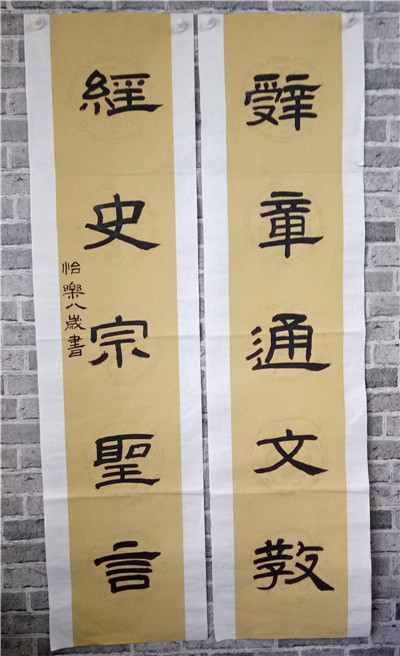 辤章通文教
經史宗聖言
怡樂八歲書